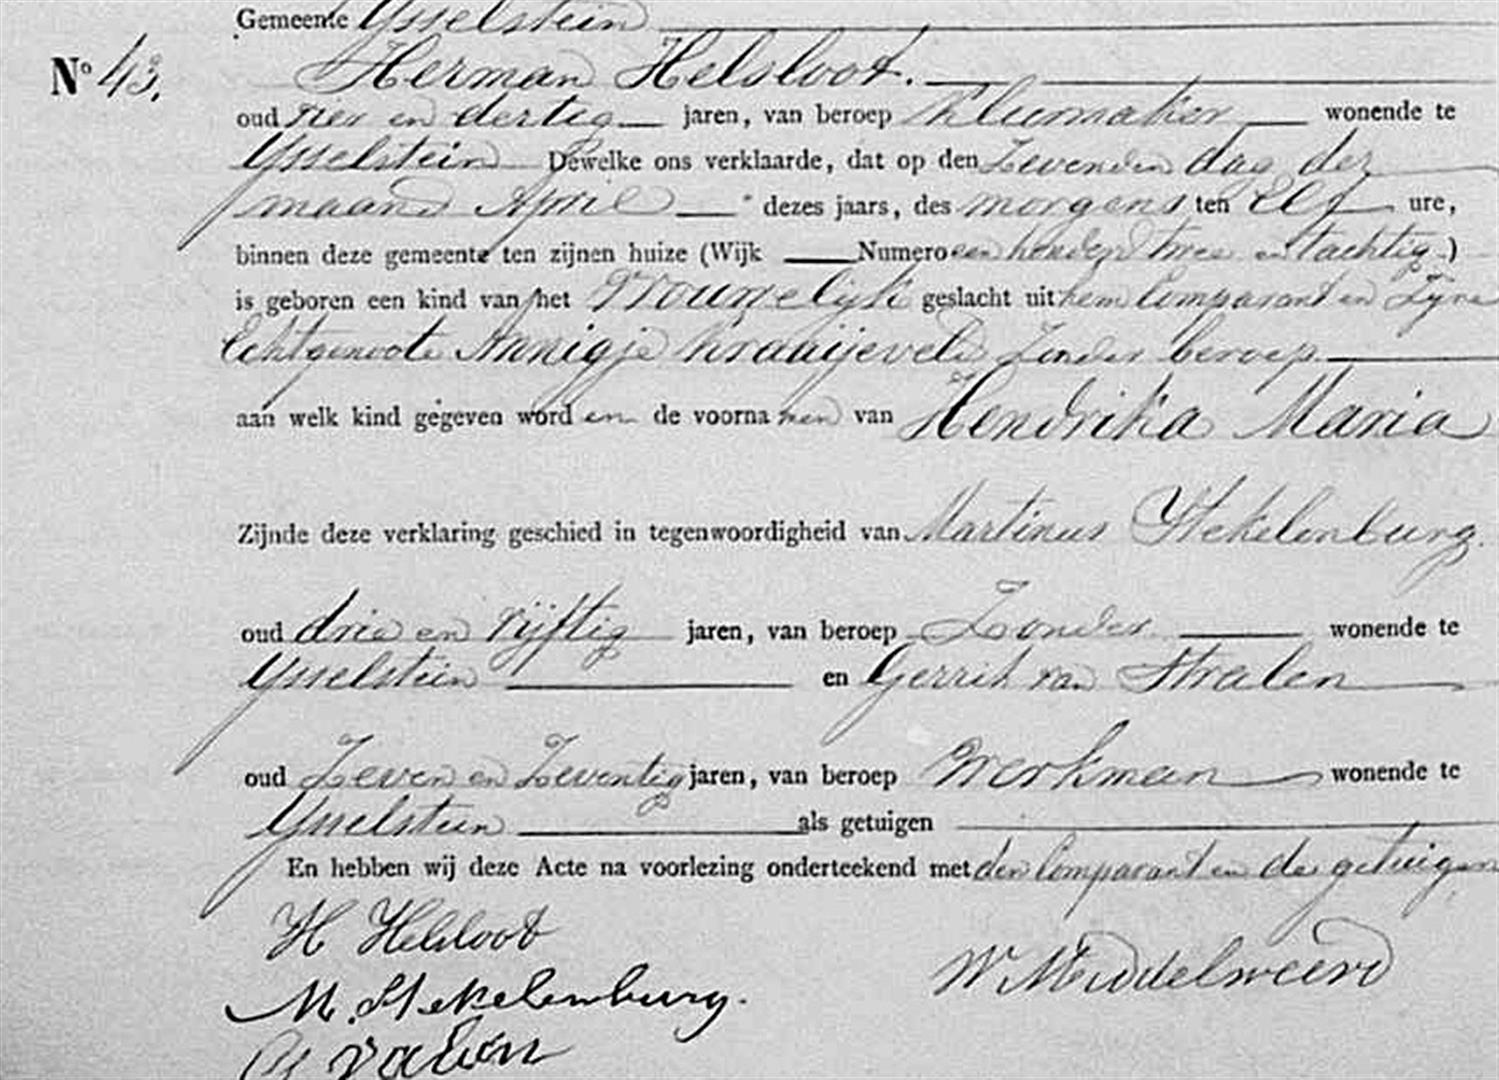 Gemeente Ysselstein
Nº 43.
Herman Helsloot.
oud vier en dertig jaren, van beroep Klumaker wonende te
Ysselstein Dewelke ons verklaarde, dat op den Zevenden dag der
maand April dezes jaars, des morgens ten Elf ure,
binnen deze gemeente ten zijnen huize (Wijk Numero een honderd twee en tachtig)
is geboren een kind van het Vrouwelijk geslacht uit hem Comparant en Zijne
Echtgenoote Annigje Kraaijeveld Zonder beroep
aan welk kind gegeven word en de voorna men van Hendrika Maria
Zijnde deze verklaring geschied in tegenwoordigheid van Martinus Stekelenburg.
oud drie en vijftig jaren, van beroep Zonder wonende te
Ysselstein en Gerrit van Stralen
oud Zeven en Zeventig jaren, van beroep Werkman wonende te
Ysselstein als getuigen
En hebben wij deze Acte na voorlezing onderteekend met den Comparant en de getuigen
H Helsloot
M. Stekelenburg.
W Middelweerd
G